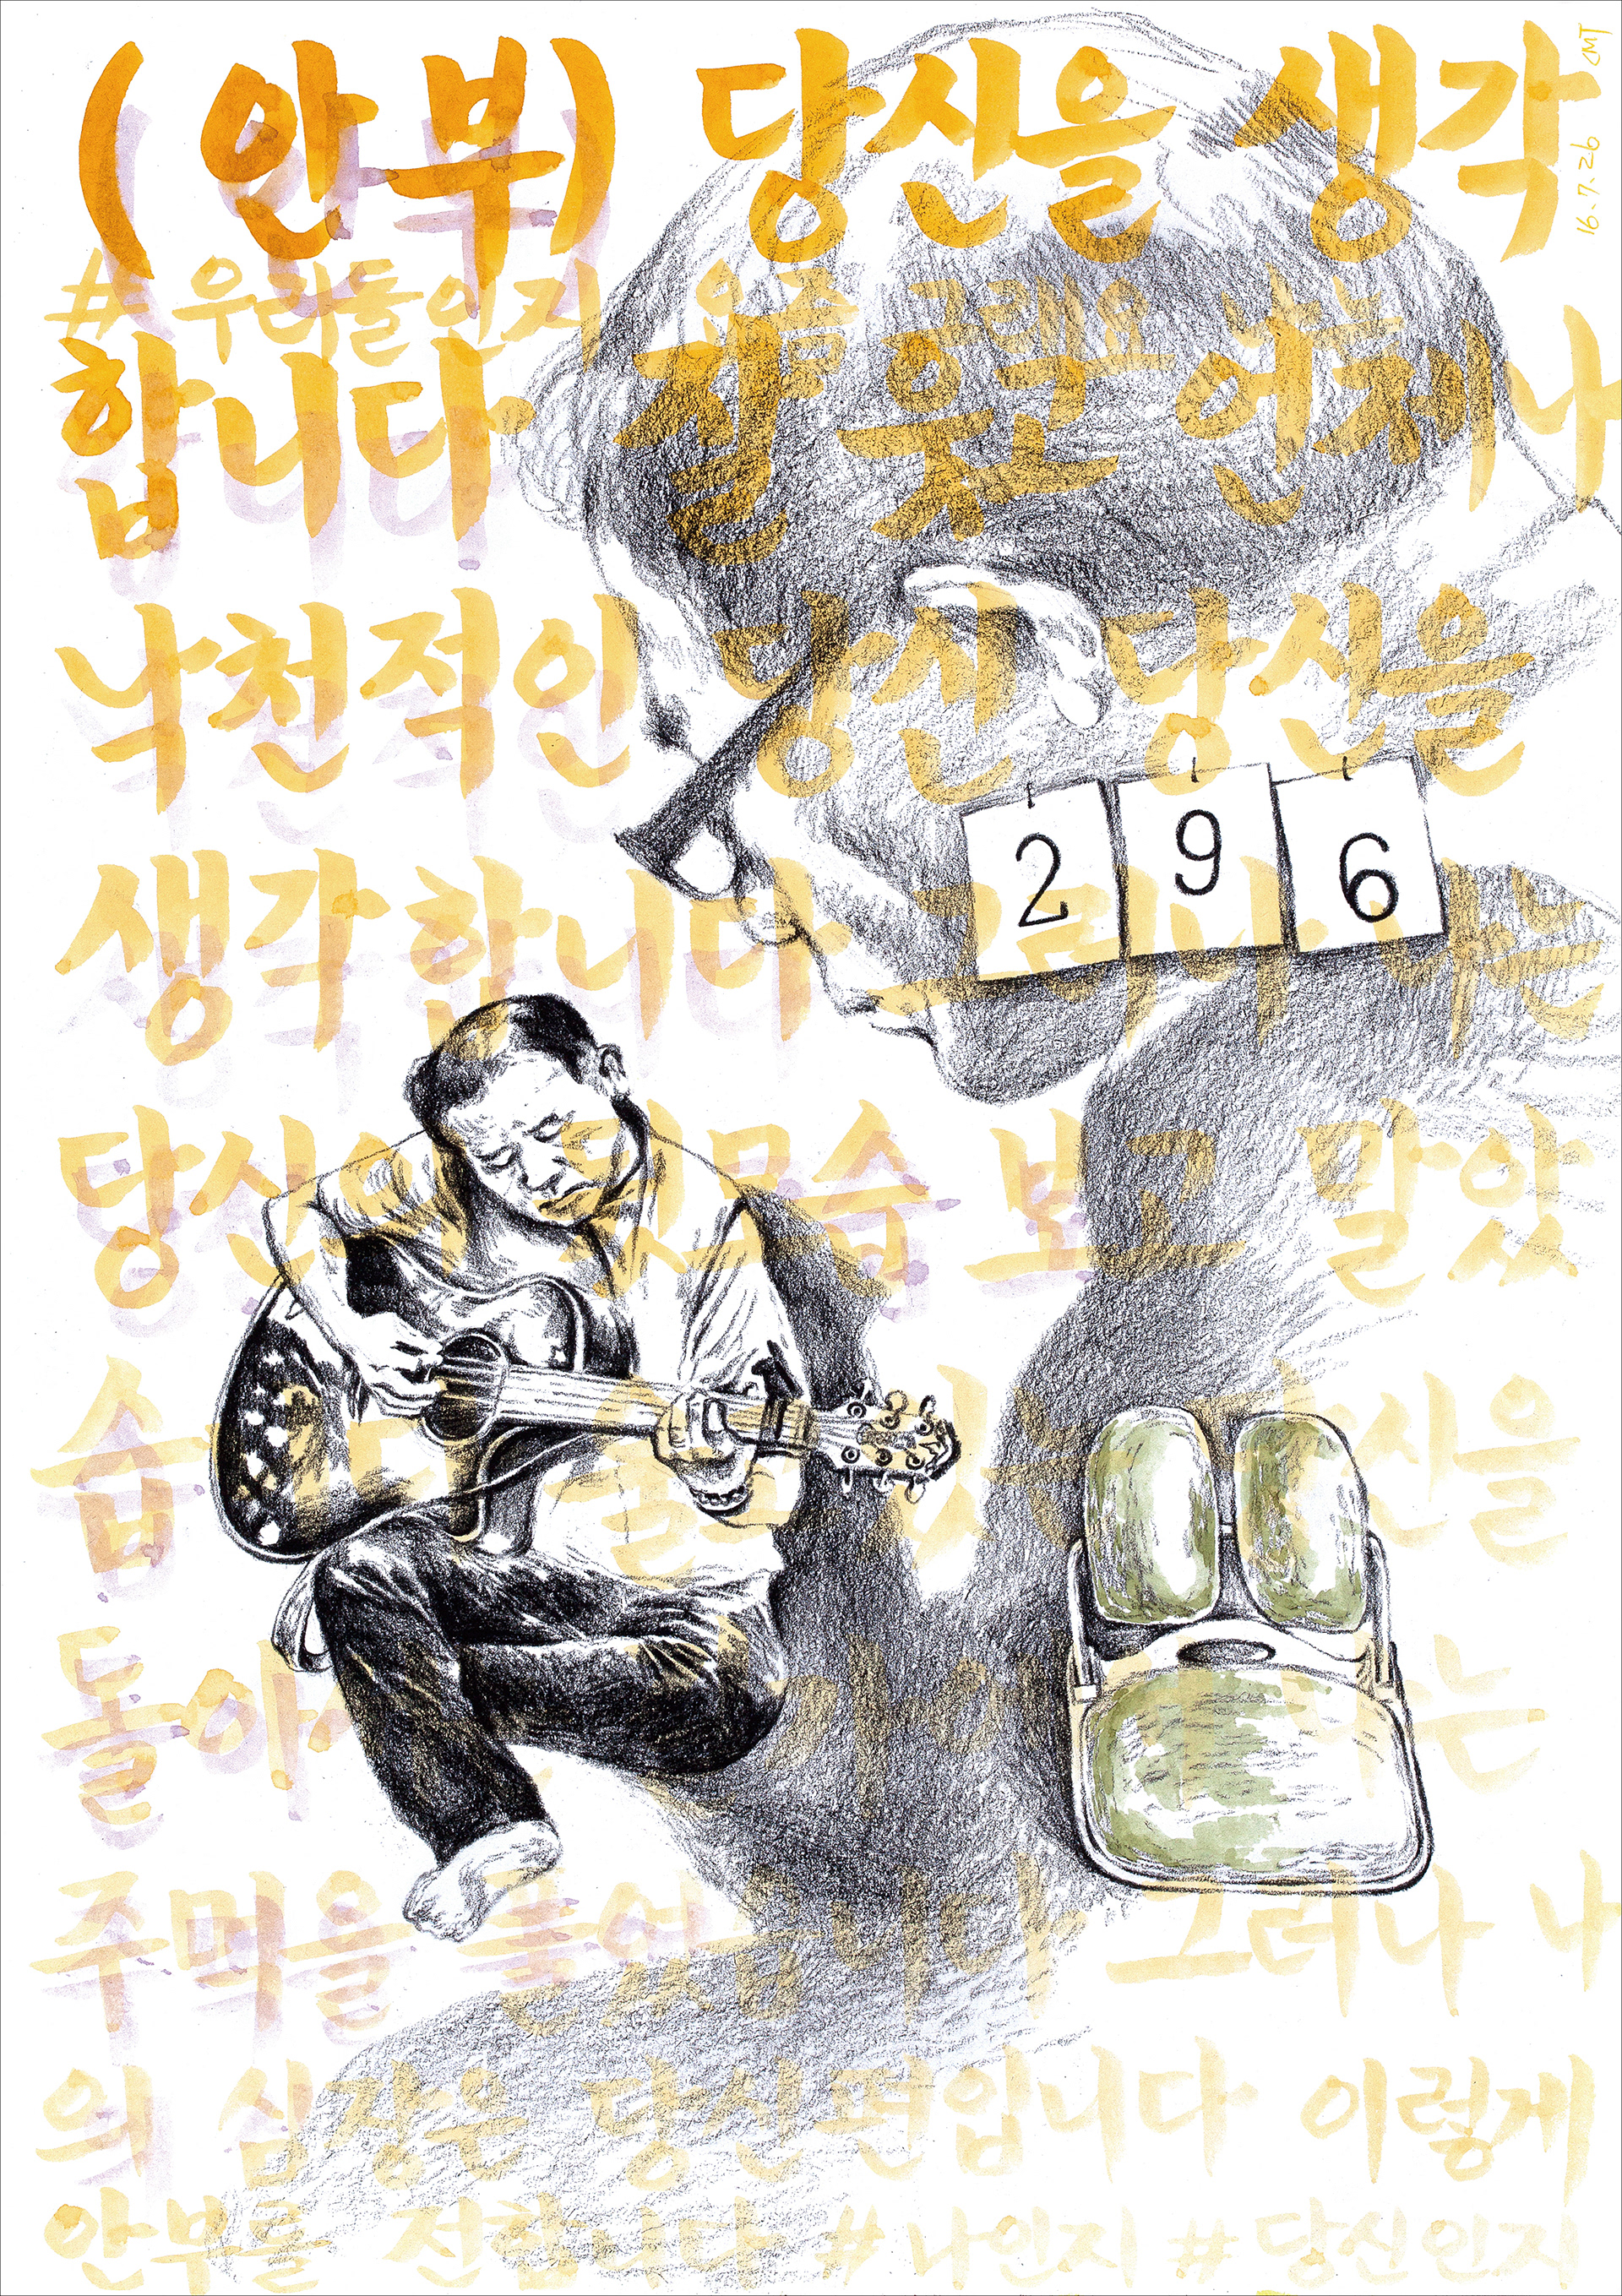 ( 안부) 당신을 생각
16.7.26 CMT
# 우리둘인지 요즘 그래요 나는
합니다 잘 웃고 언제나
낙천적인 당신 당신을
2 9 6
생각 합니다 그러나 나는
당신의 뒷모습 보고 말았
습니다 있는 당신을
돌아
주먹을 들었습니다 그러나 나
의 심장은 당신편입니다 이렇게
안부를 전합니다 #나인지 #당신인지